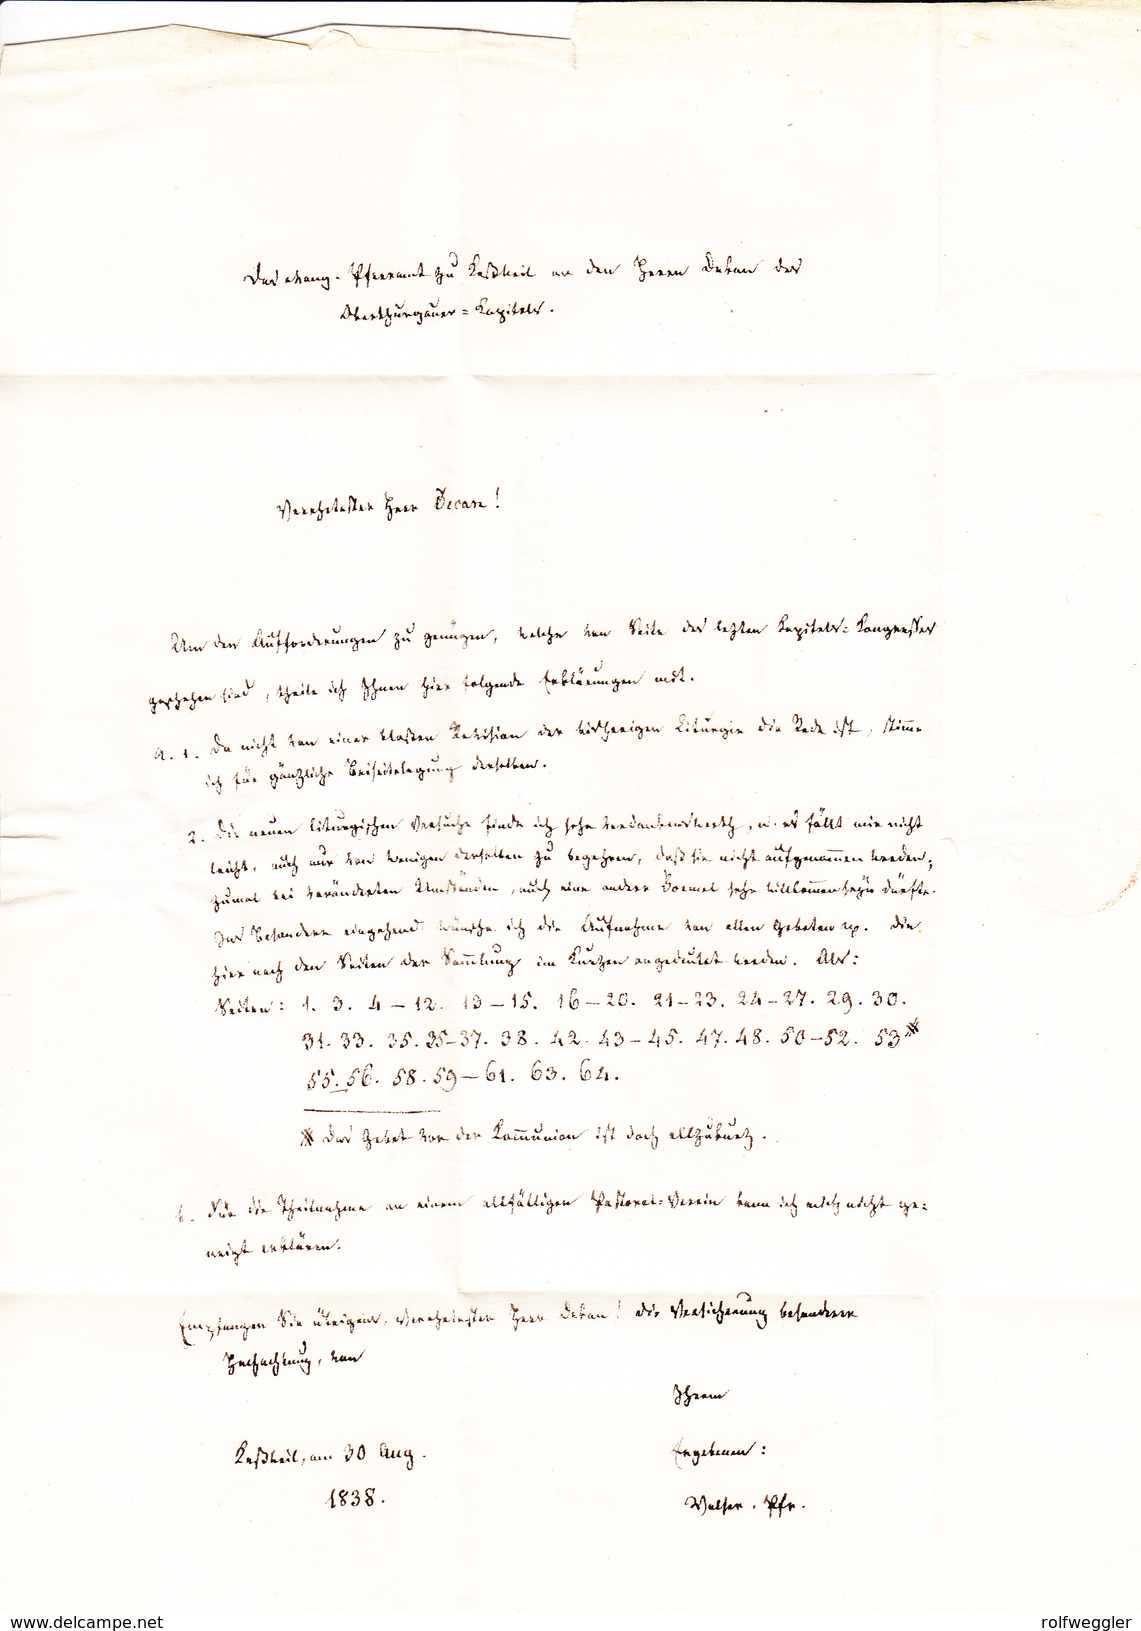 Das evang. Pfarramt zu Keßweil an den Herrn Dekan des
Oberthurgauer-Kapitels.
Verehrtester Herr Decan!
Um den Aufforderungen zu genügen, welche von Seite des letzten Kapitels-Kongresses
geschehen sind, theile ich Ihnen hier folgende Erklärungen mit.
a. 1. Da nicht von einer bloßen Revision der bisherigen Liturgie die Rede ist, stimme
ich für gänzliche Beiseitelegung derselben.
2. Die neuen liturgischen Versuche finde ich sehr verdankenswerth, u. es fällt mir nicht
leicht, auch nur von wenigen derselben zu begehren, daß sie nicht aufgenommen werden;
zumal bei veränderten Umständen, auch eine andere Formel sehr willkommen seyn dürfte.
Ins Besondere eingehend wünsche ich die Aufnahme von allen Gebeten pp. die
hier nach den Seiten der Sammlung im Kurzen angedeutet werden. Als:
Seiten: 1. 3. 4-12. 13-15. 16-20. 21-23. 24-27. 29. 30.
31. 33. 35. 35-37. 38. 42. 43-45. 47. 48. 50-52. 53*
55. 56. 58. 59-61. 63. 64.
* Das Gebet vor der Kommunion ist doch allzukurz.
b. Für die Theilnahme an einem allfälligen Pastoral-Verein kann ich mich nicht ge-
neigt erklären.
Empfangen Sie übrigens, Verehrtester Herr Dekan! die Versicherung besonderer
Hochachtung, von
Ihrem
Keßweil, am 30 Aug.
Ergebenen:
1838.
Walser, Pfr.
www.delcampe.net
rolfweggler